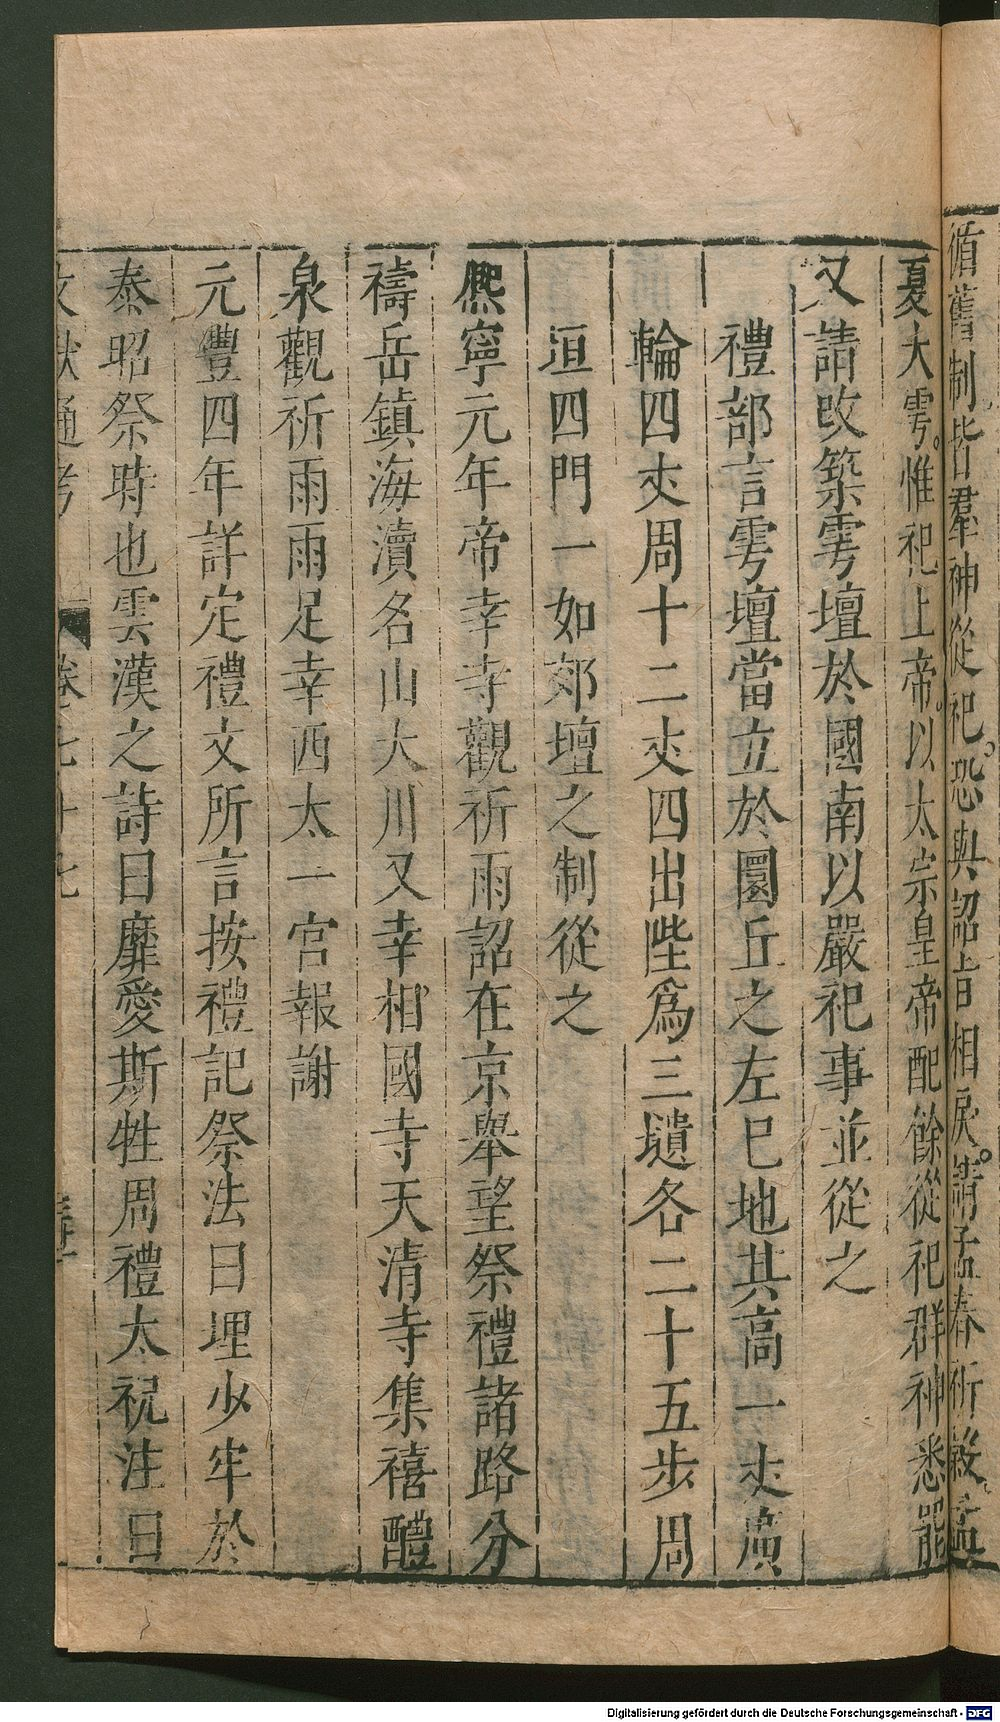 循舊制皆羣神從祀恐與詔旨相戾請孟春祈穀孟
夏大雩惟祀上帝以太宗皇帝配餘從祀群神悉罷
又請改築雩壇於國南以嚴祀事並從之
禮部言雩壇當立於圜丘之左巳地其高一𠀋廣
輪四𠀋周十二𠀋四出陛爲三壝各二十五步周
垣四門一如郊壇之制從之
熈寧元年帝幸寺觀祈雨詔在京舉望祭禮諸路分
禱岳鎮海瀆名山大川又幸相國寺天清寺集禧醴
泉觀祈雨雨足幸西太一宮報謝
元豐四年詳定禮文所言按禮記祭法曰埋少牢於
泰昭祭時也雲漢之詩曰靡愛斯牲周禮太祝注曰
文獻通考 卷七十七
Digitalisierung gefördert durch die Deutsche Forschungsgemeinschaft - DFG